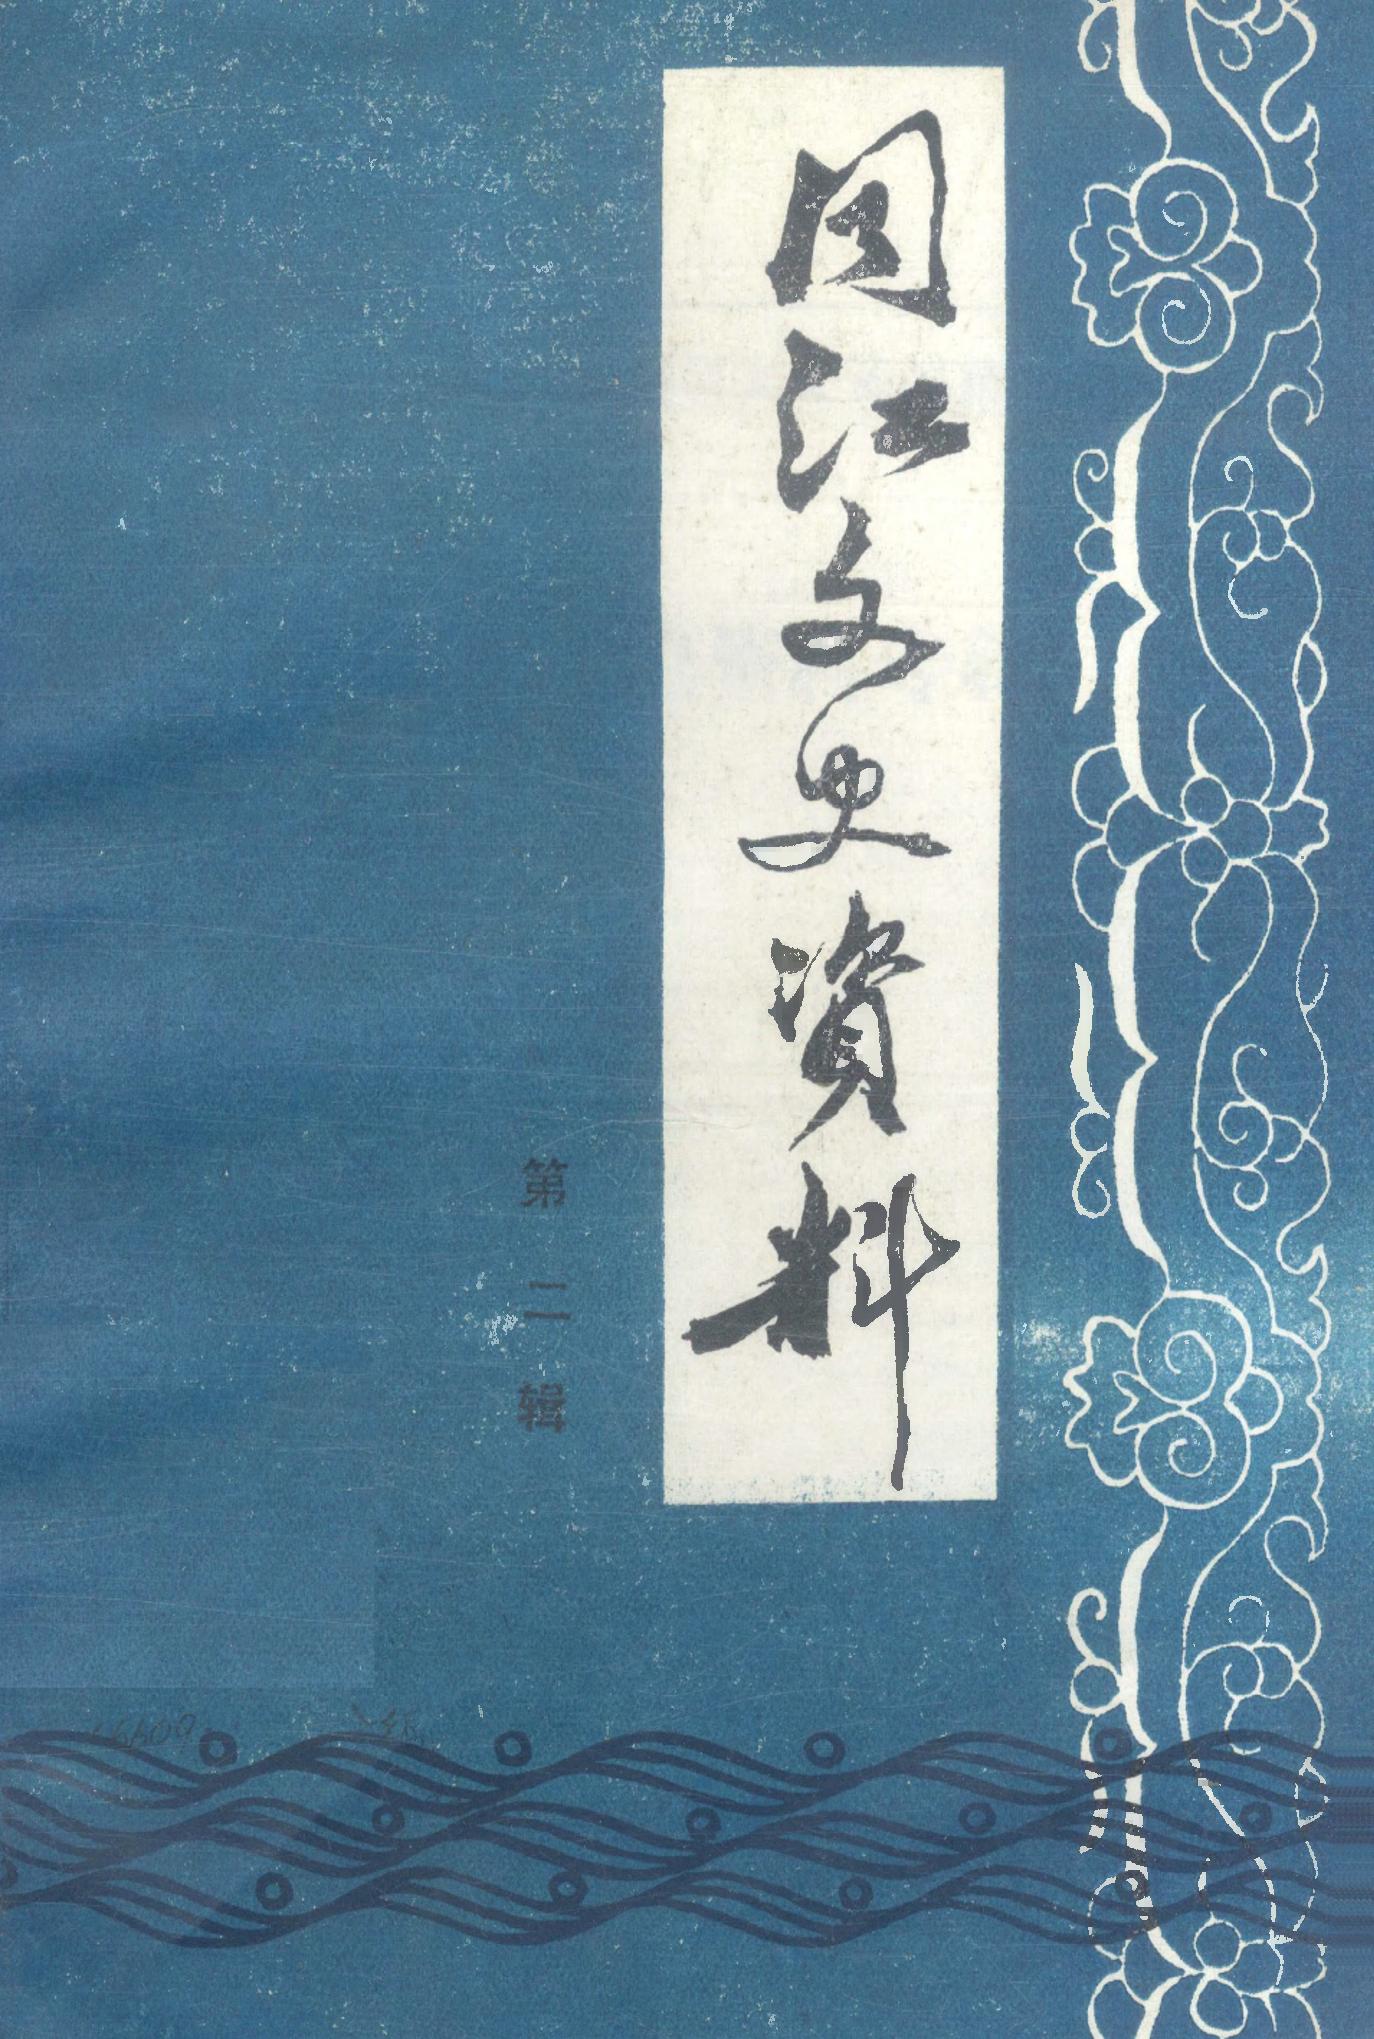 同江文史資料
第二辑